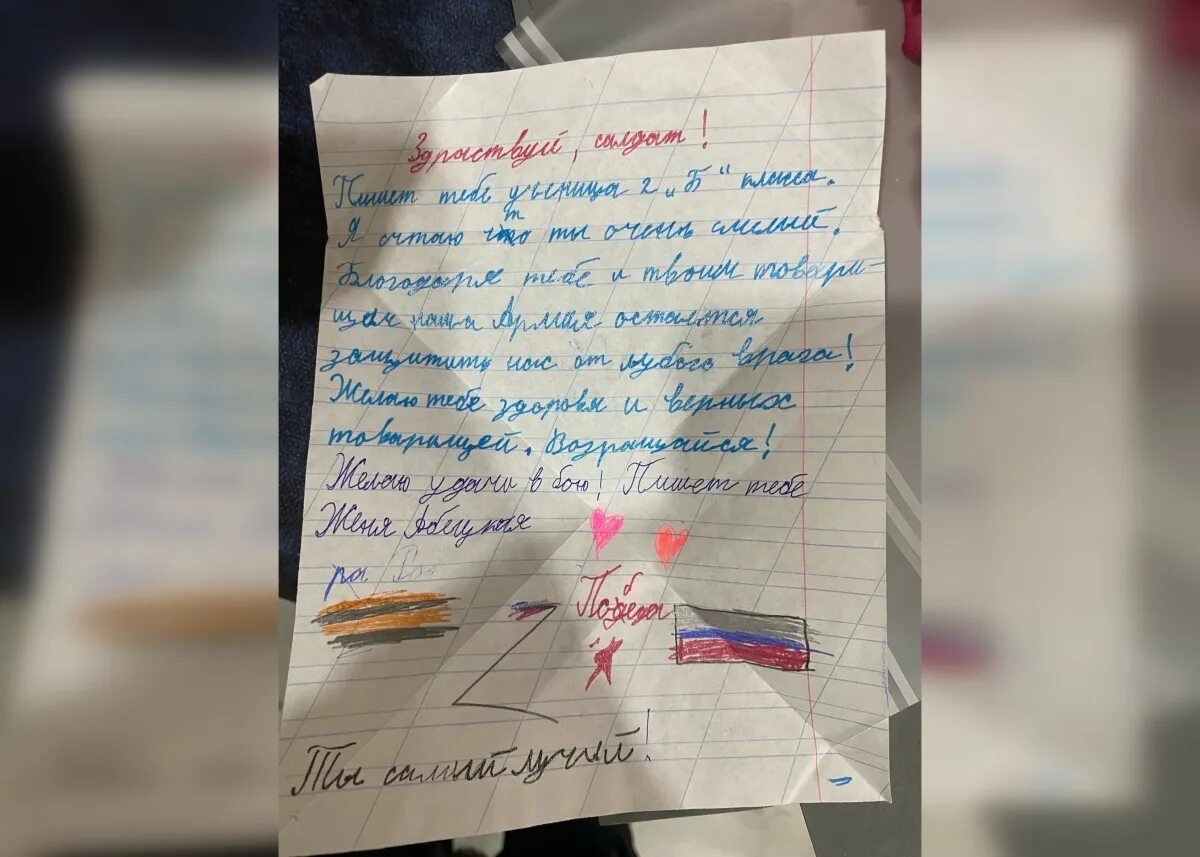 Здраствуй, салдат!
Пишет тебе ученица 2 „Б" класса.
Я счтаю что ты очень смелый.
Благодоря тебе и твоим товари-
щам наша Армия остаётся
защитить нас от любого врага!
Желаю тебе здоровя и верных
товарищей. Возращайся!
Желаю удачи в бою! Пишет тебе
Женя
ра
Победа
Z
Ты самый лучий!